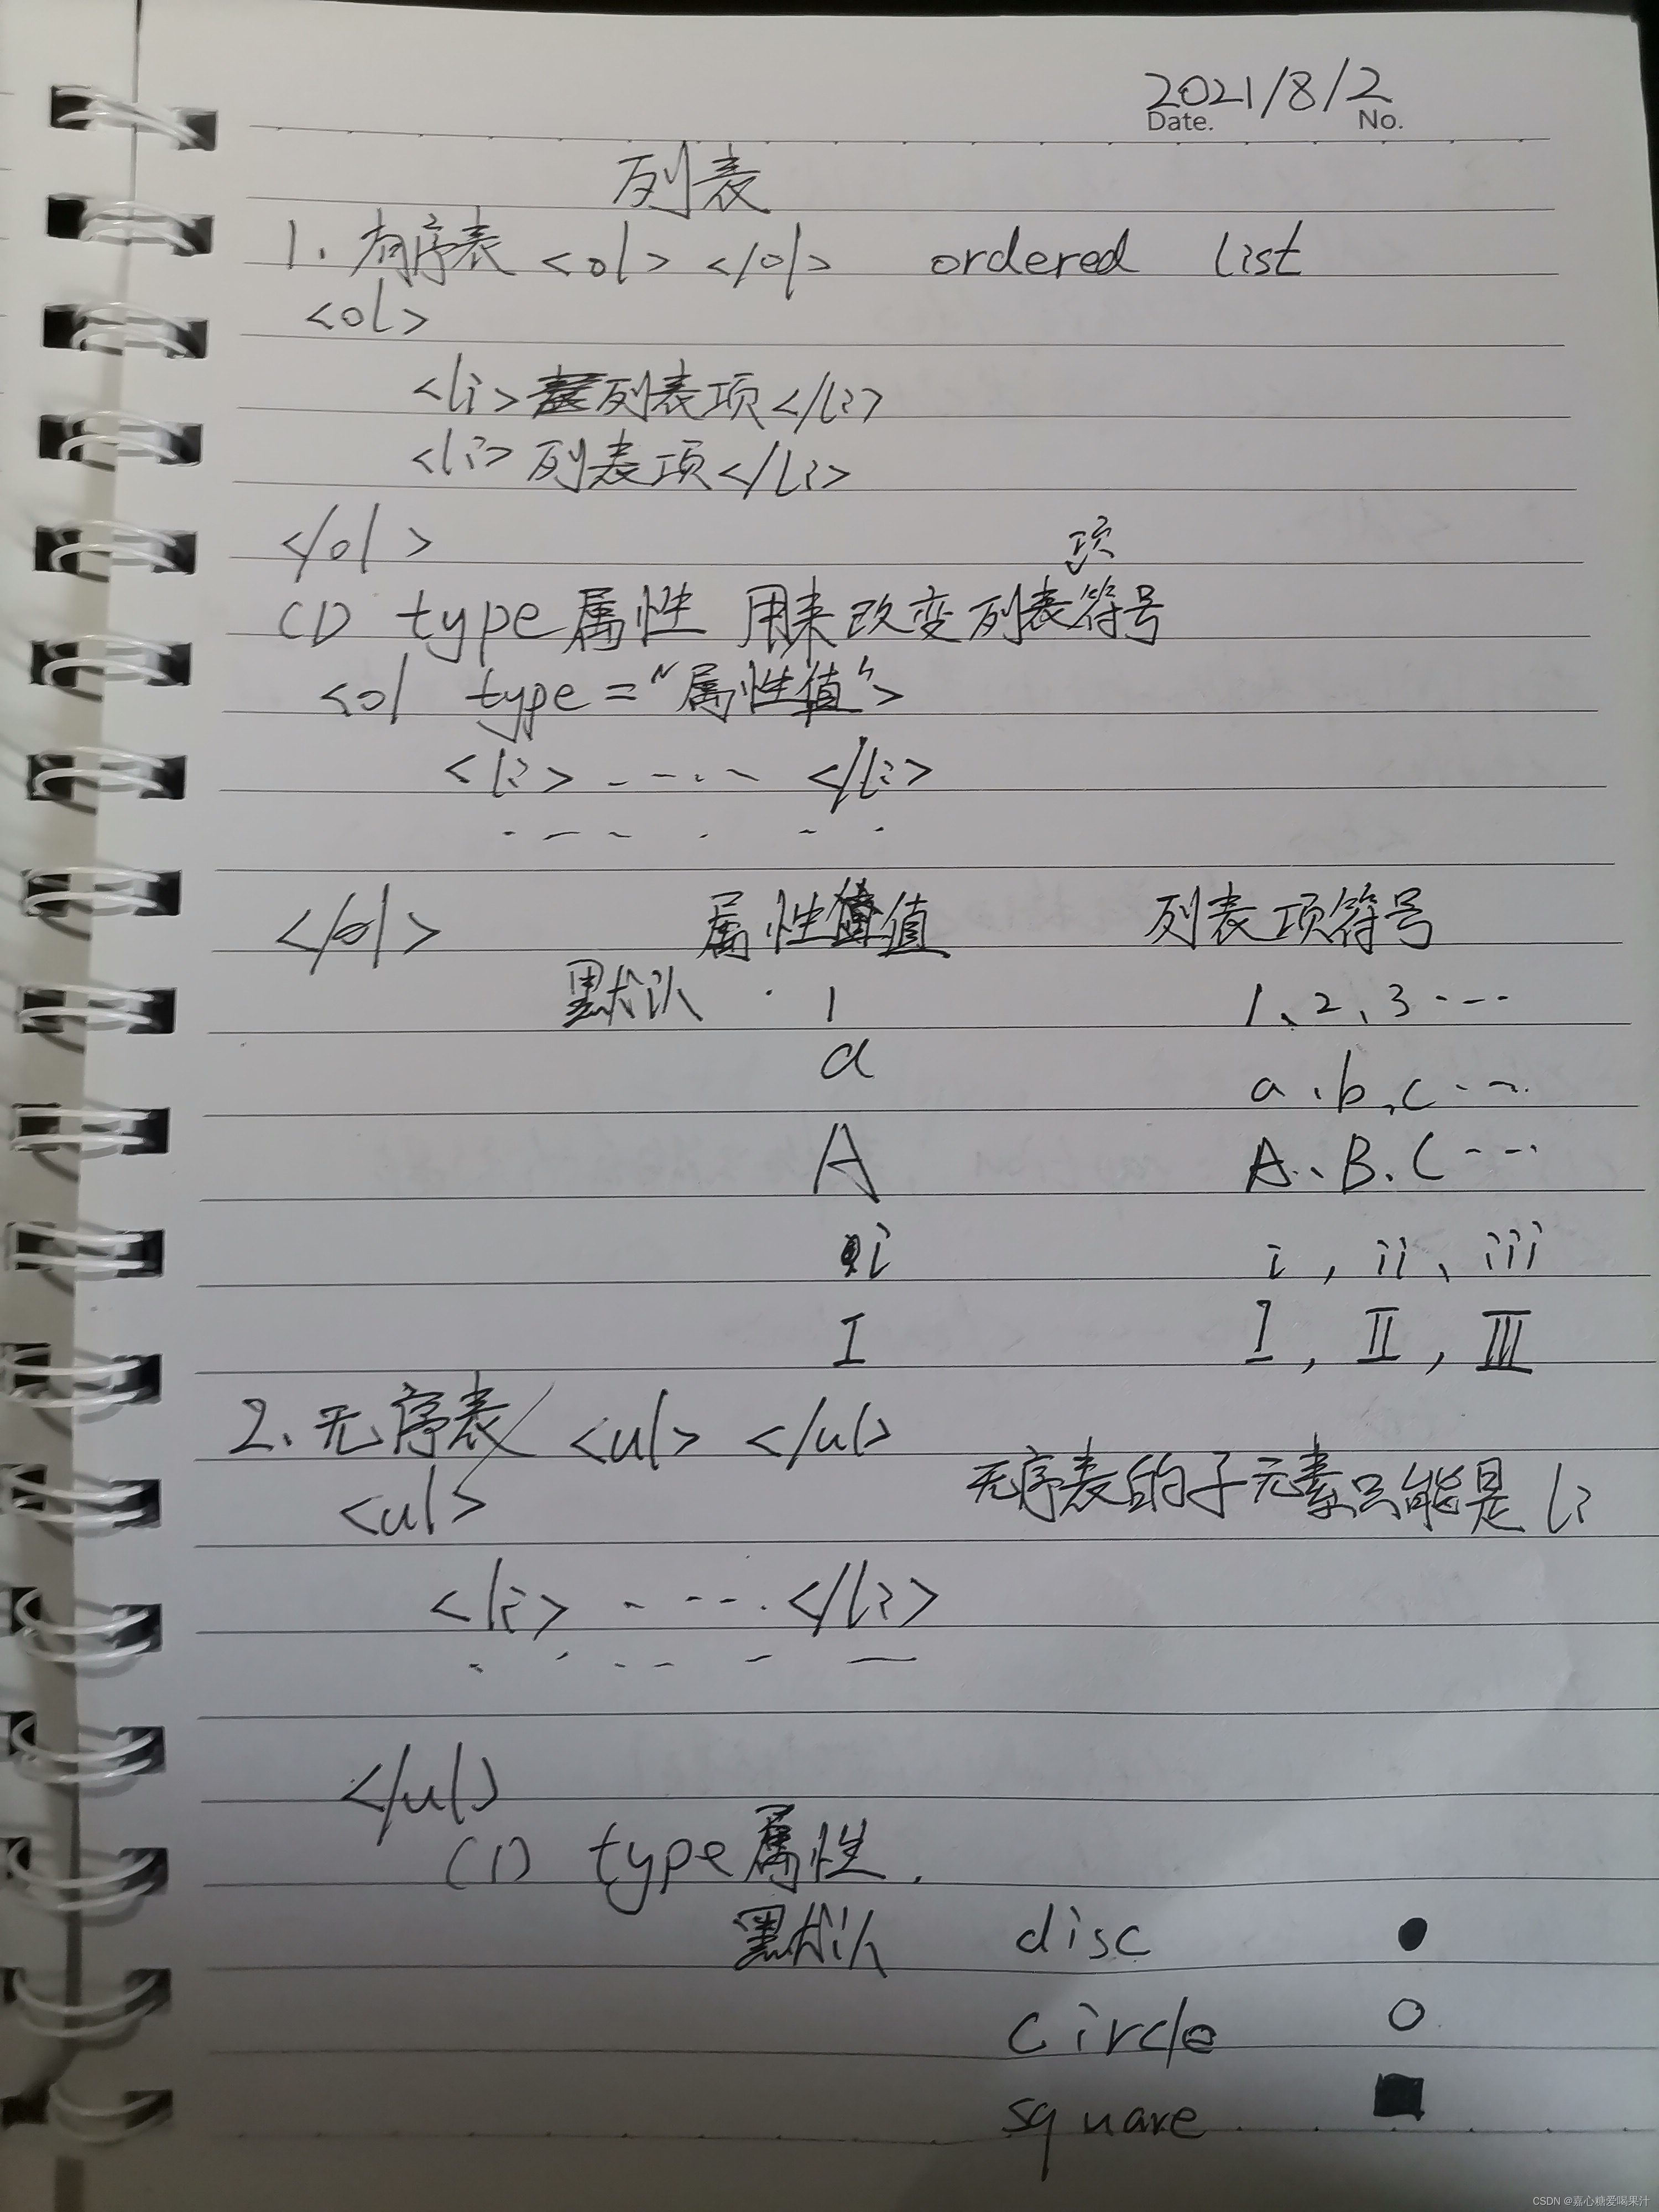 2021/8/2
Date. No.
列表
1. 有序表 <ol> </ol> ordered list
<ol>
<li>列表项</li>
<li>列表项</li>
</ol>
(1) type属性 用来改变列表项符号
<ol type="属性值">
<li> ..... </li>
......
</ol> 属性值 列表项符号
默认 · 1 1、2、3 ····
a a、b、c ···
A A、B、C ····
i i, ii、iii
I I, II, III
2. 无序表 <ul> </ul>
<ul> 无序表的子元素只能是 li
<li> ..... </li>
......
</ul>
(1) type属性.
默认 disc ●
circle ○
square ■
CSDN @嘉心糖爱喝果汁